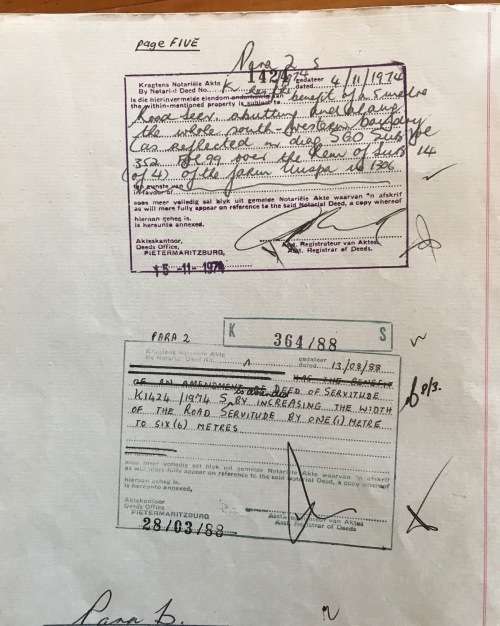 page FIVE
Para 2 S
Kragtens Notariële Akte gedateer
By Notarial Deed No. K 1424/1974 dated 4/11/1974
Is die hierinvermelde eiendom
the within-mentioned property is subject to the benefit of a 5 metre
Road Serv. abutting and along
the whole south-western boundary
(as reflected on diag SGO Sub Vol
352 Fol 99 over the Rem of Sub 14
(of 4) of the farm Umspa is 1306
ten gunste van
in favour of
soos meer volledig sal blyk uit gemelde Notariële Akte waarvan 'n afskrif
as will more fully appear on reference to the said Notarial Deed, a copy whereof
hieraan geheg is.
is hereunto annexed.
Akteskantoor,
Deeds Office,
PIETERMARITZBURG
Asst. Registrateur van Aktes
Asst. Registrar of Deeds.
15-11-1974
K 364/88 S
PARA 2
Kragtens Notariële Akte gedateer
By Notarial Deed No. dated 13/08/88
HAS THE BENEFIT
OF AN AMENDMENT DEED OF SERVITUDE
K1424/1974 S BY INCREASING THE WIDTH
OF THE ROAD SERVITUDE BY ONE(1) METRE
TO SIX(6) METRES
soos meer volledig sal blyk uit gemelde Notariële Akte waarvan 'n afskrif
as will more fully appear on reference to the said Notarial Deed, a copy whereof
hieraan geheg is.
is hereunto annexed.
Akteskantoor
Deeds Office
PIETERMARITZBURG
Asst. Registrateur van Aktes
Asst. Registrar of Deeds
28/03/88
8/3.
Para 6.